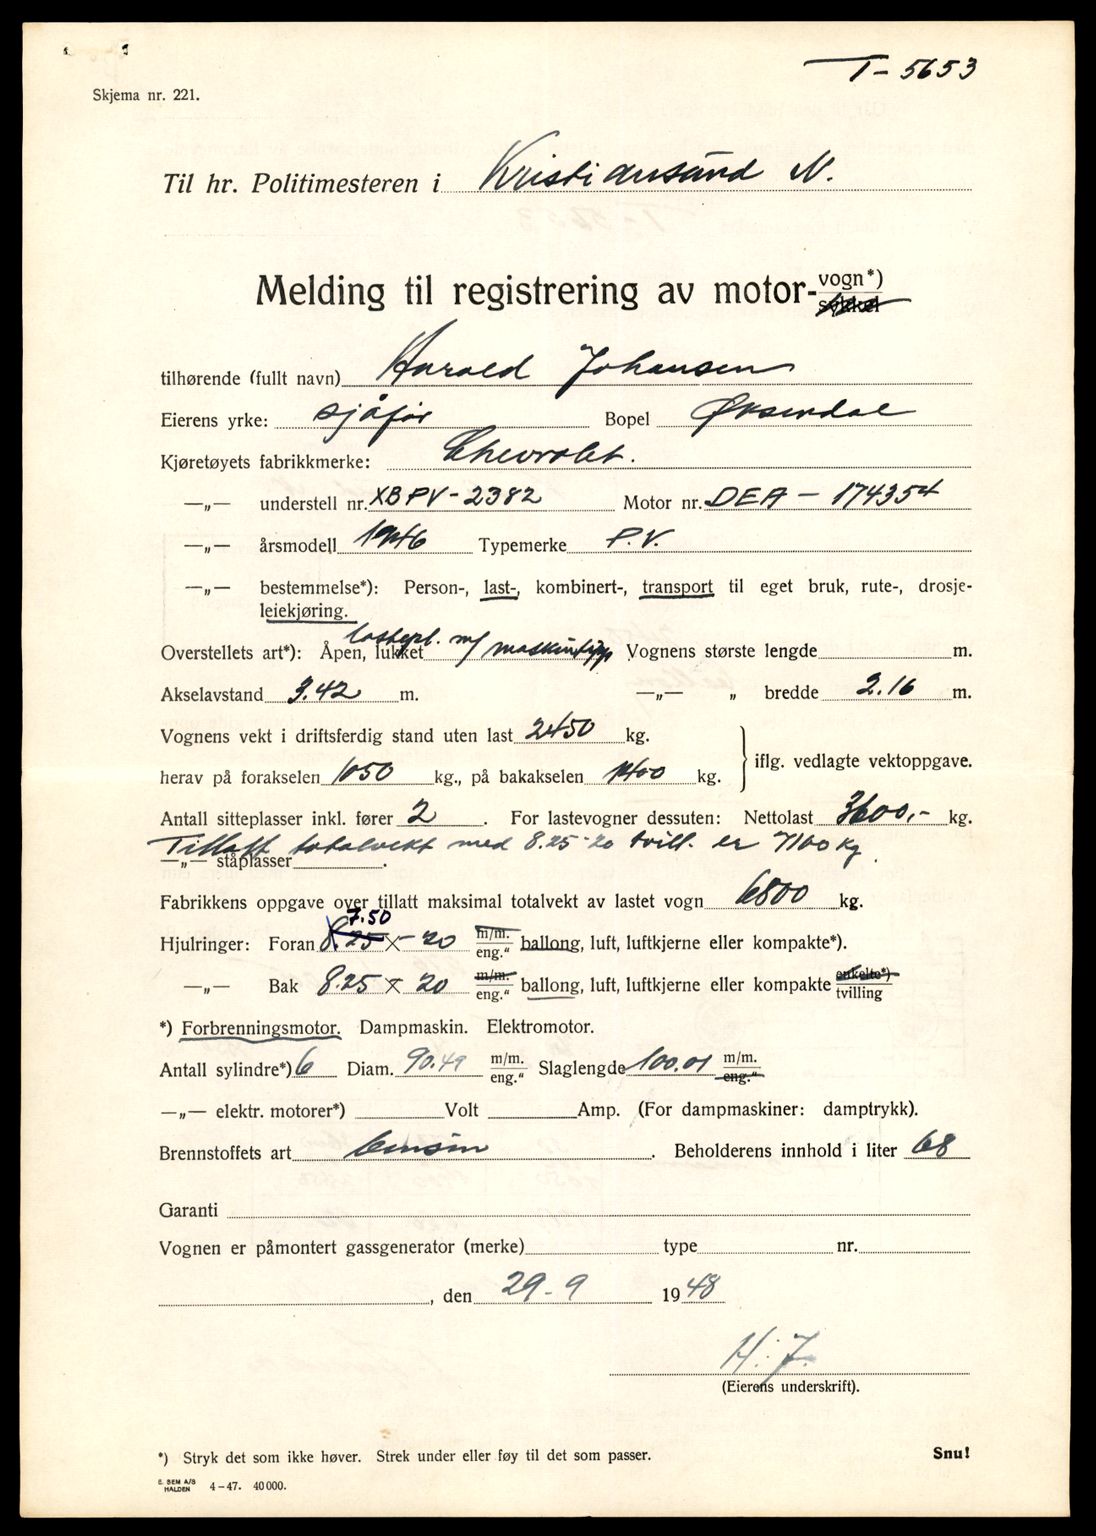 T - 5653
Skjema nr. 221.
Til hr. Politimesteren i Kristiansund N.
Melding til registrering av motor-vogn*)
sykkel
tilhørende (fullt navn) Harald Johansen
Eierens yrke: sjåfør Bopel Øksendal
Kjøretøyets fabrikkmerke: Chevrolet.
—„— understell nr. XBPV - 2382 Motor nr. DEA - 174354
—„— årsmodell 1946 Typemerke P.V.
—„— bestemmelse*): Person-, last-, kombinert-, transport til eget bruk, rute-, drosje-
leiekjøring.
Overstellets art*): Åpen, lukket lastepl. m/ maskintipp Vognens største lengde m.
Akselavstand 3.42 m. —„— „ bredde 2.16 m.
Vognens vekt i driftsferdig stand uten last 2450 kg.
herav på forakselen 1050 kg., på bakakselen 1400 kg. iflg. vedlagte vektoppgave.
Antall sitteplasser inkl. fører 2. For lastevogner dessuten: Nettolast 3600,- kg.
Tillatt totalvekt med 8.25-20 tvill. er 7100 kg.
—„— ståplasser.
Fabrikkens oppgave over tillatt maksimal totalvekt av lastet vogn 6800 kg.
7.50
Hjulringer: Foran 8.25 × - 20 m/m. eng.“ ballong, luft, luftkjerne eller kompakte*).
—„— Bak 8.25 × 20 m/m. eng.“ ballong, luft, luftkjerne eller kompakte enkelte*) tvilling
*) Forbrenningsmotor. Dampmaskin. Elektromotor.
Antall sylindre*) 6 Diam. 90.49 m/m. eng.“ Slaglengde 100.01 m/m. eng.“
—„— elektr. motorer*) Volt Amp. (For dampmaskiner: damptrykk).
Brennstoffets art bensin. Beholderens innhold i liter 68
Garanti
Vognen er påmontert gassgenerator (merke) type nr.
, den 29 - 9 1948
H. J.
(Eierens underskrift).
*) Stryk det som ikke høver. Strek under eller føy til det som passer.
Snu!
E. SEM A/S
HALDEN 4-47. 40 000.